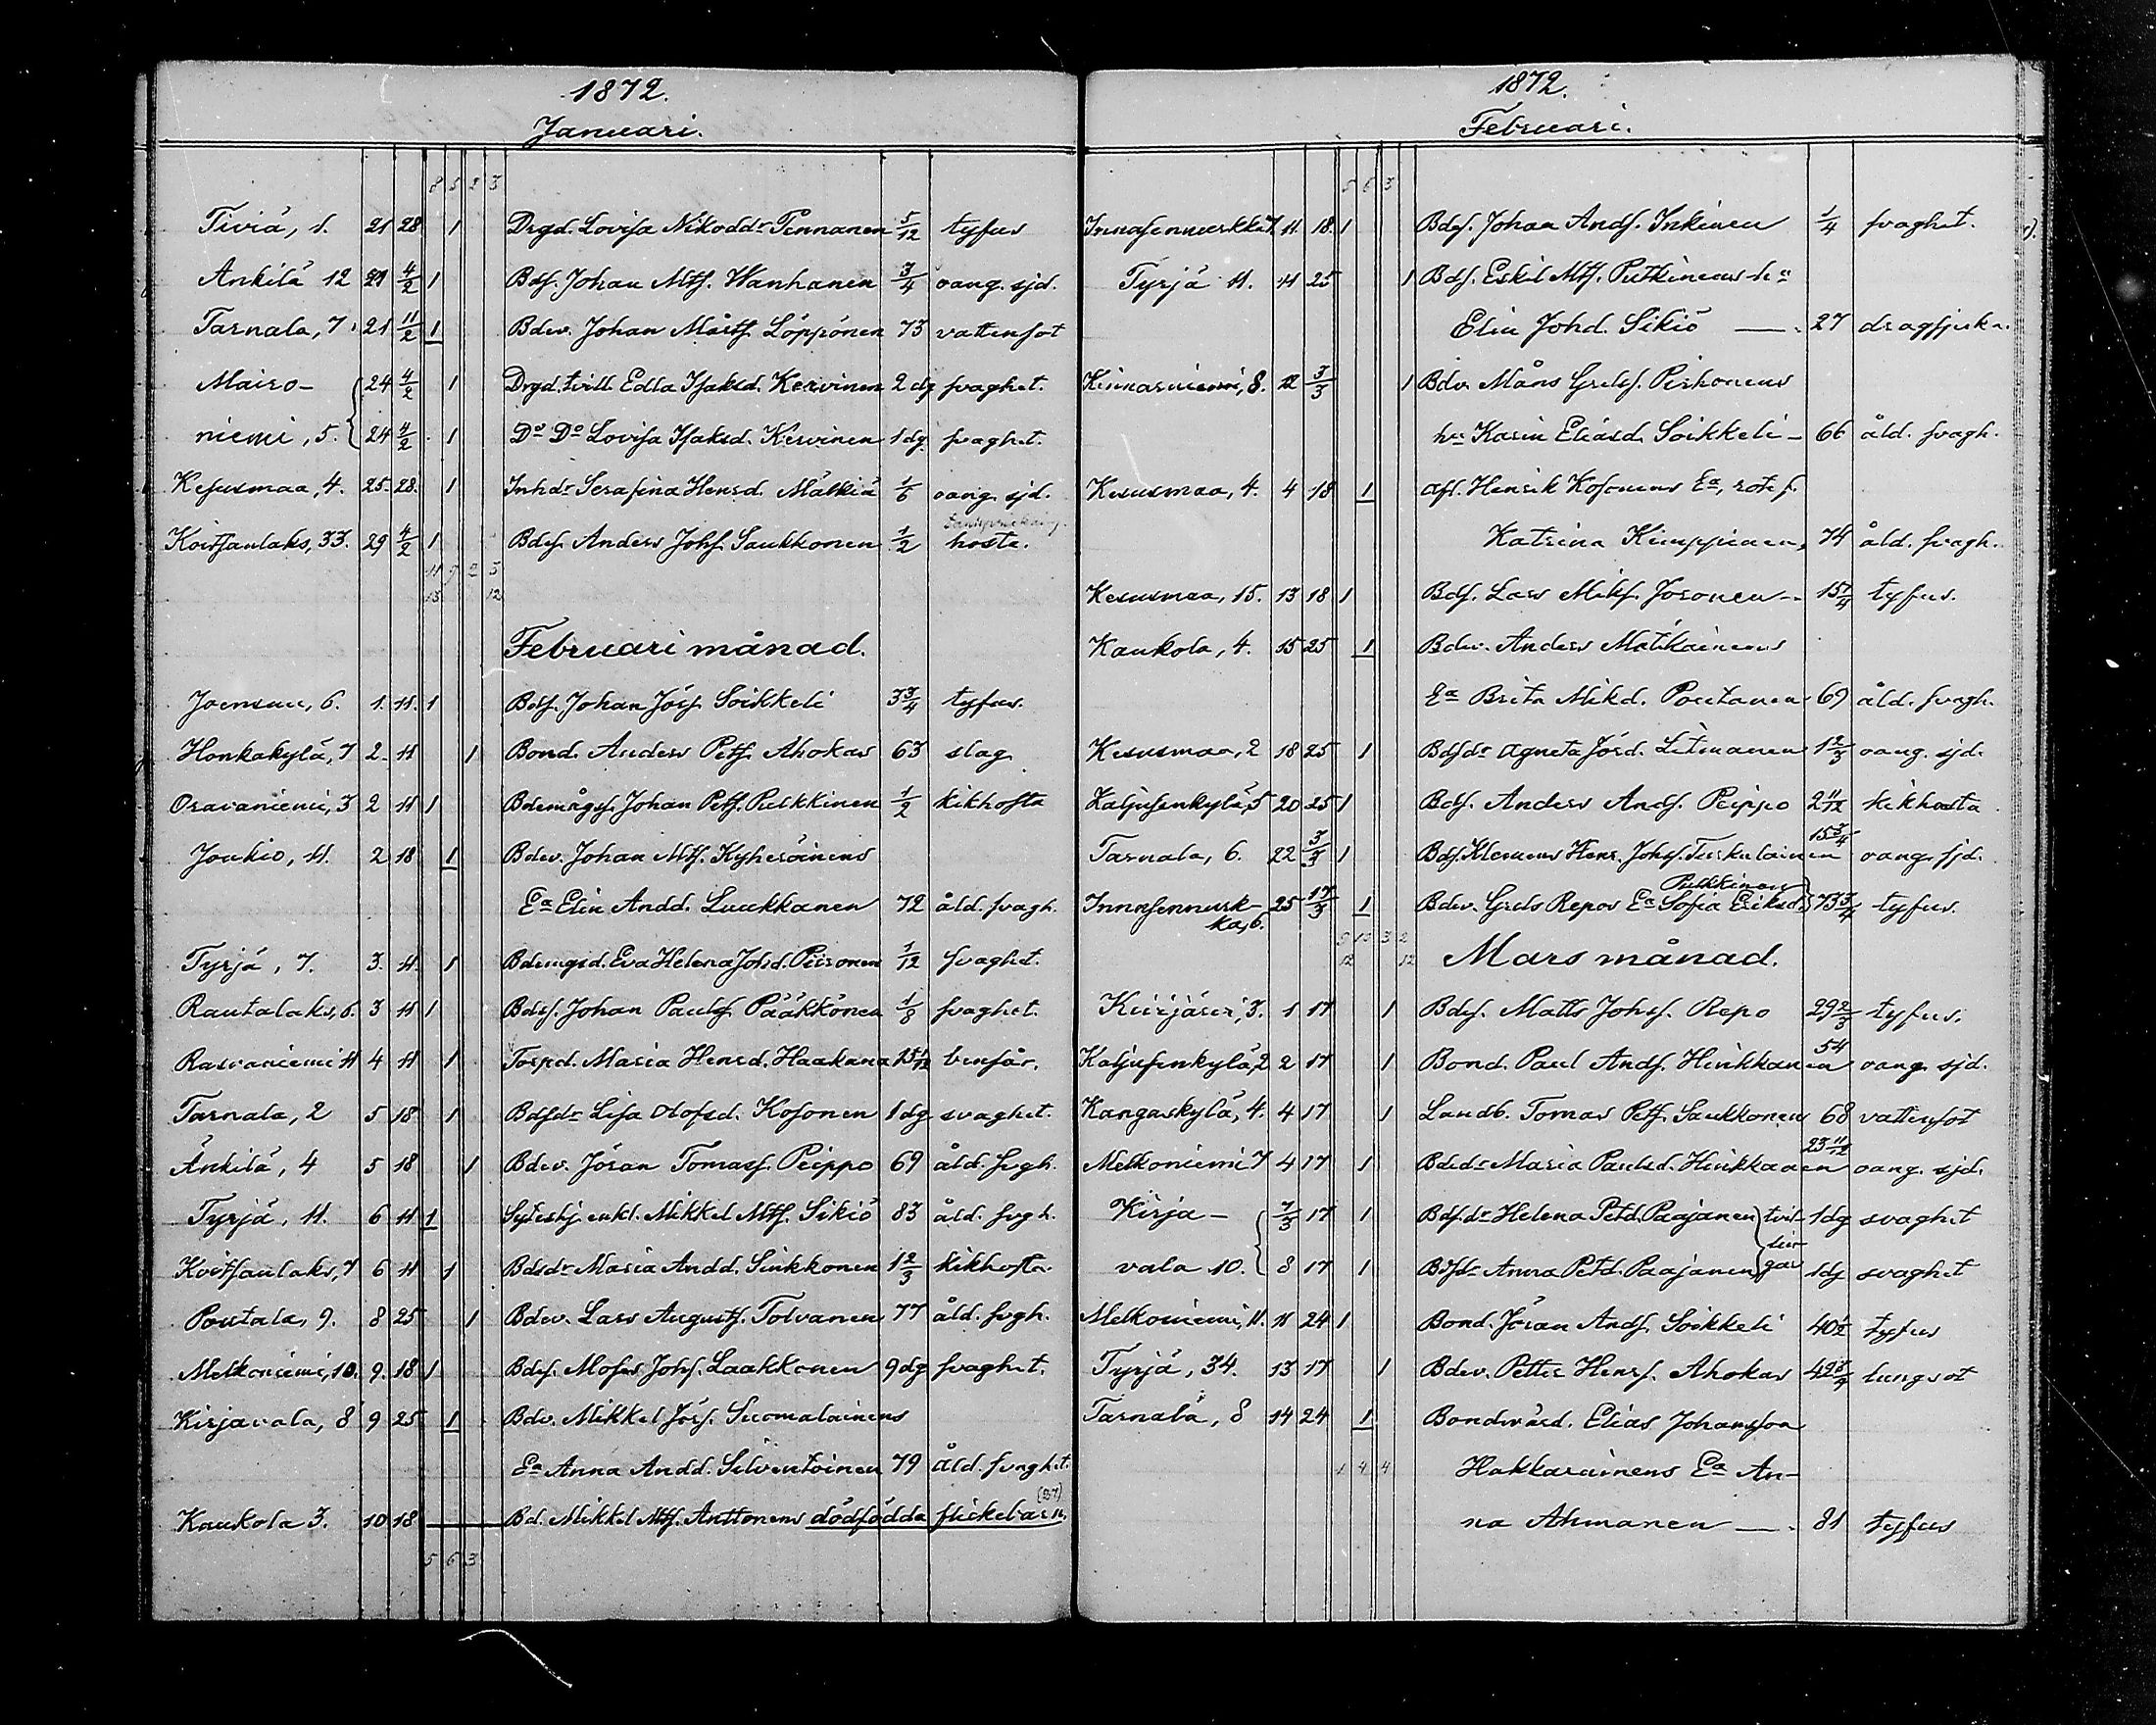 1872.
Januari.
8 5 2 3
Tiviä, 1. 21 28 1 Drgd. Lovisa Nikoddr Pennanen 5/12 tyfus
Ankila 12 21 4/2 1 Bdsf. Johan Mtf. Wanhanen 3/4 oang. sjd.
Tarnala, 7. 21 11/2 1 Bdev. Johan Mårtf. Löppönen 73 vattensot
Mairo- 24 4/2 1 Drgd. tvill. Edla Isaksd. Kervinen 2 dg svaghet.
niemi, 5. 24 4/2 1 Do Do Lovisa Isaksd. Kervinen 1 dg. svaghet.
Kesusmaa, 4. 25. 28. 1 Inhdr Serafina Hensd. Mälkiä 1/6 oang. sjd.
Koitsanlaks, 33. 29 4/2 1 Bdsf. Anders Johf. Saukkonen 1/2 hosta.
11 9 2 5
13 12
Februari månad.
Joensuu, 6. 1. 11. 1 Bdsf. Johan Jösf. Soikkeli 3 3/4 tyfus.
Honkakylä, 7 2. 11 1 Bond. Anders Petf. Ahokas 63 slag
Oravaniemi, 3 2 11 1 Bdemågsf. Johan Petf. Pulkkinen 1/2 kikhosta
Joukio, 11. 2 18 1 Bdev. Johan Mtf. Kyheröinens
Ea Elin Andd. Luukkanen 72 åld. svagh.
Tyrjä, 7. 3. 11. 1 Bdemgsd. Eva Helena Johd. Piironen 1/12 svaghet.
Rautalaks, 6. 3 11 1 Bdsf. Johan Paulsf. Pääkkönen 1/8 svaghet.
Rasvaniemi 11 4 11 1 Torpd. Maria Hensd. Haakana benfår.
Tarnala, 2 5 18 1 Bdsdr Lisa Olofsd. Kosonen 1 dg svaghet.
Änkilä, 4 5 18 1 Bdev. Jöran Tomasf. Peippo 69 åld. svgh.
Tyrjä, 11. 6 11 1 Syteshj. enkl. Mikkel Mtf. Sikiö 83 åld. svgh.
Koitsanlaks, 7 6 11 1 Bdsdr Maria Andd. Sinkkonen 1 2/3 kikhosta
Poutala, 9. 8 25 1 Bdev. Lars Augustf. Tolvanen 77 åld. svgh.
Melkoniemi, 10. 9. 18 1 Bdsf. Moses Johf. Laakkonen 9 dg svaghet.
Kirjavala, 8 9 25 1 Bdv. Mikkel Jösf. Suomalainens
Ea Anna Andd. Silventoinen 79 åld. svaghet.
(B7)
Kaukola 3. 10 18 Bd. Mikkel Mtf. Anttonens dödfödda flickebarn.
5 6 3
1872.
Februari.
5 6 3
7. 11. 18. 1 Bdsf. Johan Andf. Inkinen 1/4 svaghet.
Tyrjä 11. 11 25 1 Bdsf. Eskil Mtf. Putkinens hu
Elin Johd. Sikiö — 27 dragsjuka.
Kinnarniemi, 8. 12 3/3 1 Bdv. Måns Grelsf. Pirhonens
hu Karin Eliasd. Soikkeli – 66 åld. svagh.
Kesusmaa, 4. 4 18 1 Afl. Henrik Kosonens Ea, rote f.
Katrina Kimppinen, 74 åld. svagh.
Kesusmaa, 15. 13 18 1 Bdsf. Lars Mikf. Joronen – 15 1/4 tyfus.
Kaukola, 4. 15 25 1 Bdev. Anders Matikainens
Ea Brita Mikd. Poutanen 69 åld. svagh.
Kesusmaa, 2 18 25 1 Bdsdr Agneta Jörd. Litmanen 1 2/3 oang. sjd.
Kaljusenkylä, 5 20 25 1 Bdsf. Anders Andf. Peippo 2 11/12 kikhosta
Tarnala, 6. 22 3/3 1 Bdsf. Klemens Henr. Johsf. Turkulainen 15 3/4 oang. sjd.
Pulkkinen
Innasennurk- 25 17/3 1 Bdev. Grels Repos Ea Sofia Eriksd. 73 3/4 tyfus.
ka, 6.
9 10 3 2
12 12
Mars månad.
Kiirjärvi, 3. 1 17 1 Bdsf. Matts Johsf. Repo 29 2/3 tyfus.
Kaljusenkylä, 2 2 17 1 Bond. Paul Andf. Hinkkanen 54 oang. sjd.
Kangaskylä, 4. 4 17 1 Landb. Tomas Petf. Saukkonen 68 vattensot
Melkoniemi 7 4 17 1 Bdedr Maria Paulsd. Hinkkanen 23 11/12 oang. sjd.
Kirja- 7/3 17 1 Bdsdr Helena Petd. Paajanen tvil- 1 dg svaghet
lin-
vala 10. 8 17 1 Bdsdr Anna Petd. Paajanen gar 1 dg svaghet
Melkoniemi, 11. 11 24 1 Bond. Jöran Andf. Soikkeli 40 1/2 tyfus
Tyrjä, 34. 13 17 1 Bdev. Petter Hensf. Ahokas 42 3/4 lungsot
Tarnala, 8 14 24 1 Bondevärd. Elias Johansson
1 4 4 Hakkarainens Ea An-
na Ahmanen — 81 tyfus